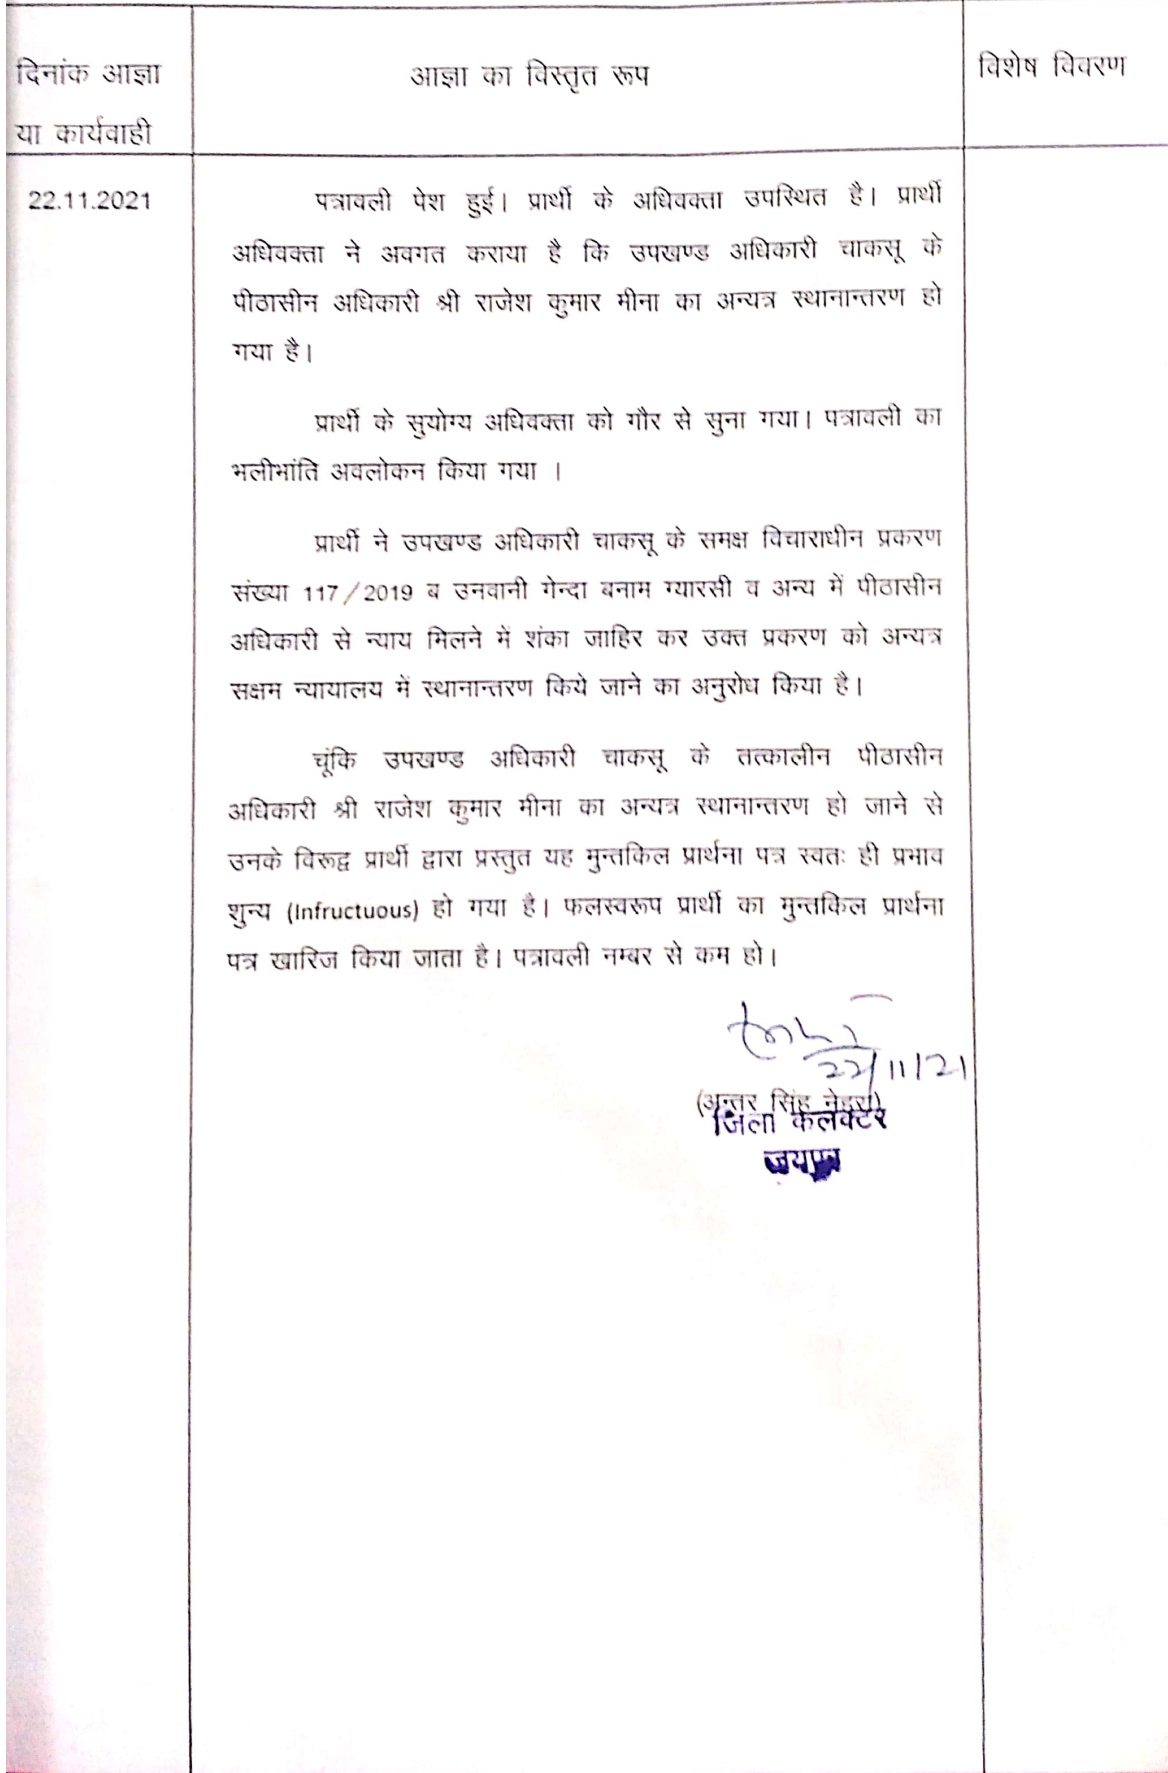 दिनांक आज्ञा
या कार्यवाही
आज्ञा का विस्तृत रूप
विशेष विवरण
22.11.2021
पत्रावली पेश हुई। प्रार्थी के अधिवक्ता उपस्थित है। प्रार्थी
अधिवक्ता ने अवगत कराया है कि उपखण्ड अधिकारी चाकसू के
पीठासीन अधिकारी श्री राजेश कुमार मीना का अन्यत्र स्थानान्तरण हो
गया है।
प्रार्थी के सुयोग्य अधिवक्ता को गौर से सुना गया। पत्रावली का
भलीभांति अवलोकन किया गया ।
प्रार्थी ने उपखण्ड अधिकारी चाकसू के समक्ष विचाराधीन प्रकरण
संख्या 117/2019 ब उनवानी गेन्दा बनाम ग्यारसी व अन्य में पीठासीन
अधिकारी से न्याय मिलने में शंका जाहिर कर उक्त प्रकरण को अन्यत्र
सक्षम न्यायालय में स्थानान्तरण किये जाने का अनुरोध किया है।
चूंकि उपखण्ड अधिकारी चाकसू के तत्कालीन पीठासीन
अधिकारी श्री राजेश कुमार मीना का अन्यत्र स्थानान्तरण हो जाने से
उनके विरूद्व प्रार्थी द्वारा प्रस्तुत यह मुन्तकिल प्रार्थना पत्र स्वतः ही प्रभाव
शुन्य (Infructuous) हो गया है। फलस्वरूप प्रार्थी का मुन्तकिल प्रार्थना
पत्र खारिज किया जाता है। पत्रावली नम्बर से कम हो।
22/11/21
(अन्तर सिंह नेहरा)
जिला कलक्टर
जयपुर